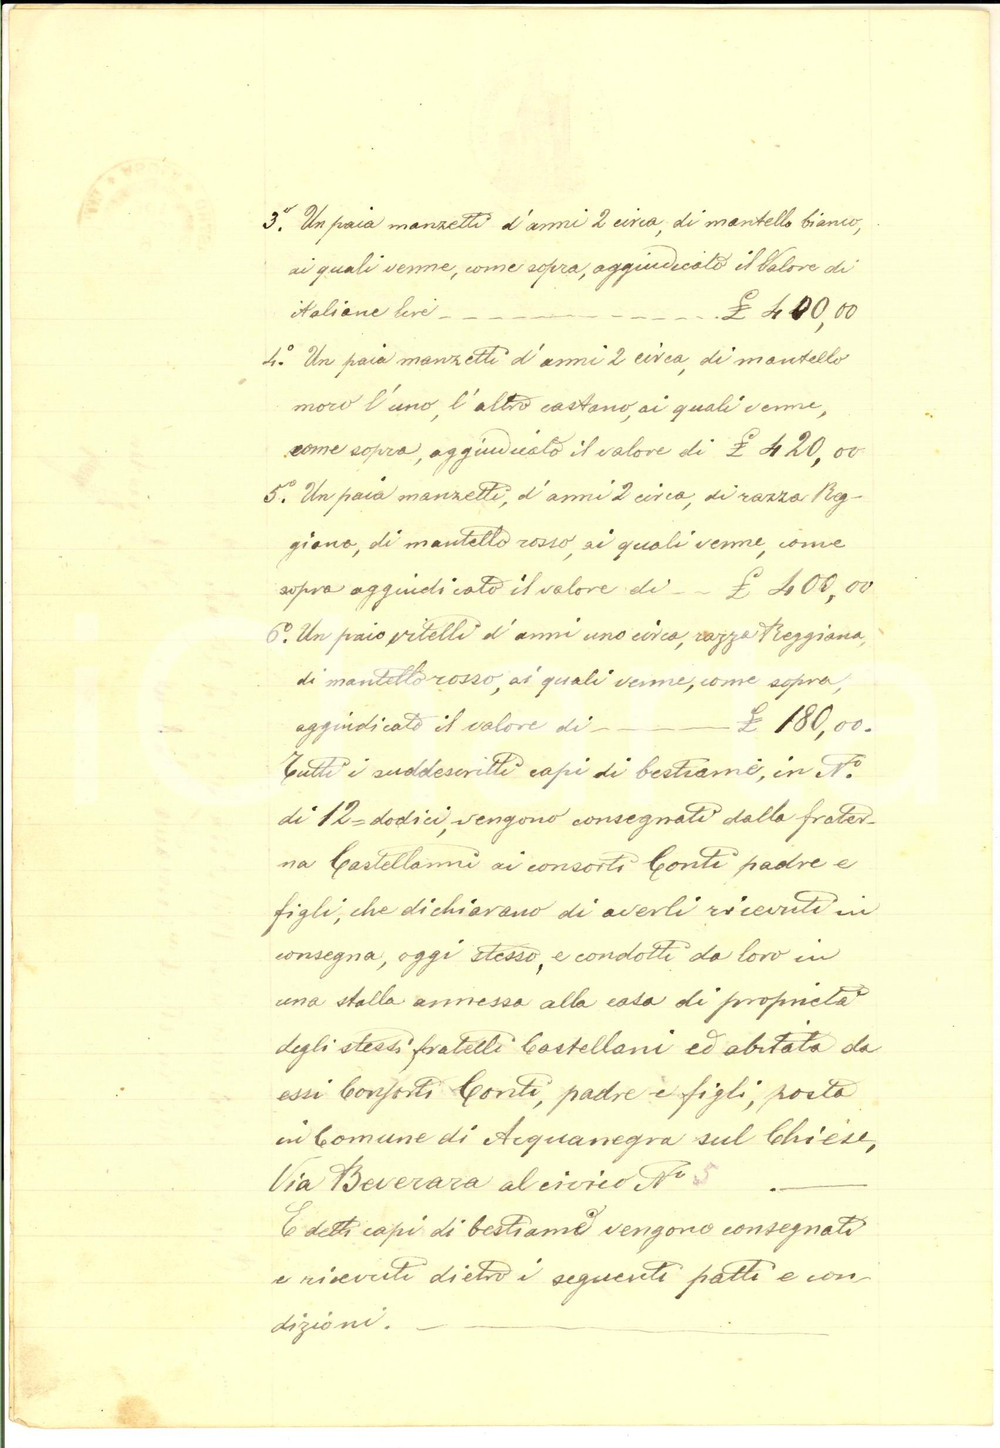 3º. Un paia manzetti d'anni 2 circa, di mantello bianco,
ai quali venne, come sopra, aggiudicato il valore di
italiane lire £ 400,00
4.º Un paia manzetti d'anni 2 circa, di mantello
moro l'uno, l'altro castano, ai quali venne,
come sopra, aggiudicato il valore di £ 420,00
5º. Un paia manzetti, d'anni 2 circa, di razza Reg-
giana, di mantello rosso, ai quali venne, come
sopra aggiudicato il valore di £ 400,00
6º. Un paio vitelli d'anni uno circa, razza Reggiana,
di mantello rosso, ai quali venne, come sopra,
aggiudicato il valore di £ 180,00.
Tutti i suddescritti capi di bestiame, in Nº
di 12 = dodici, vengono consegnati dalla frater-
na Castellanni ai consorti Conti padre e
figli, che dichiarano di averli ricevuti in
consegna, oggi stesso, e condotti da loro in
una stalla annessa alla casa di proprietà
degli stessi fratelli Castellani ed abitata da
essi Consorti Conti, padre e figli, posta
in Comune di Acquanegra sul Chiese,
Via Beverara al civico Nº 5.
E detti capi di bestiame vengono consegnati
e ricevuti dietro i seguenti patti e con-
dizioni.